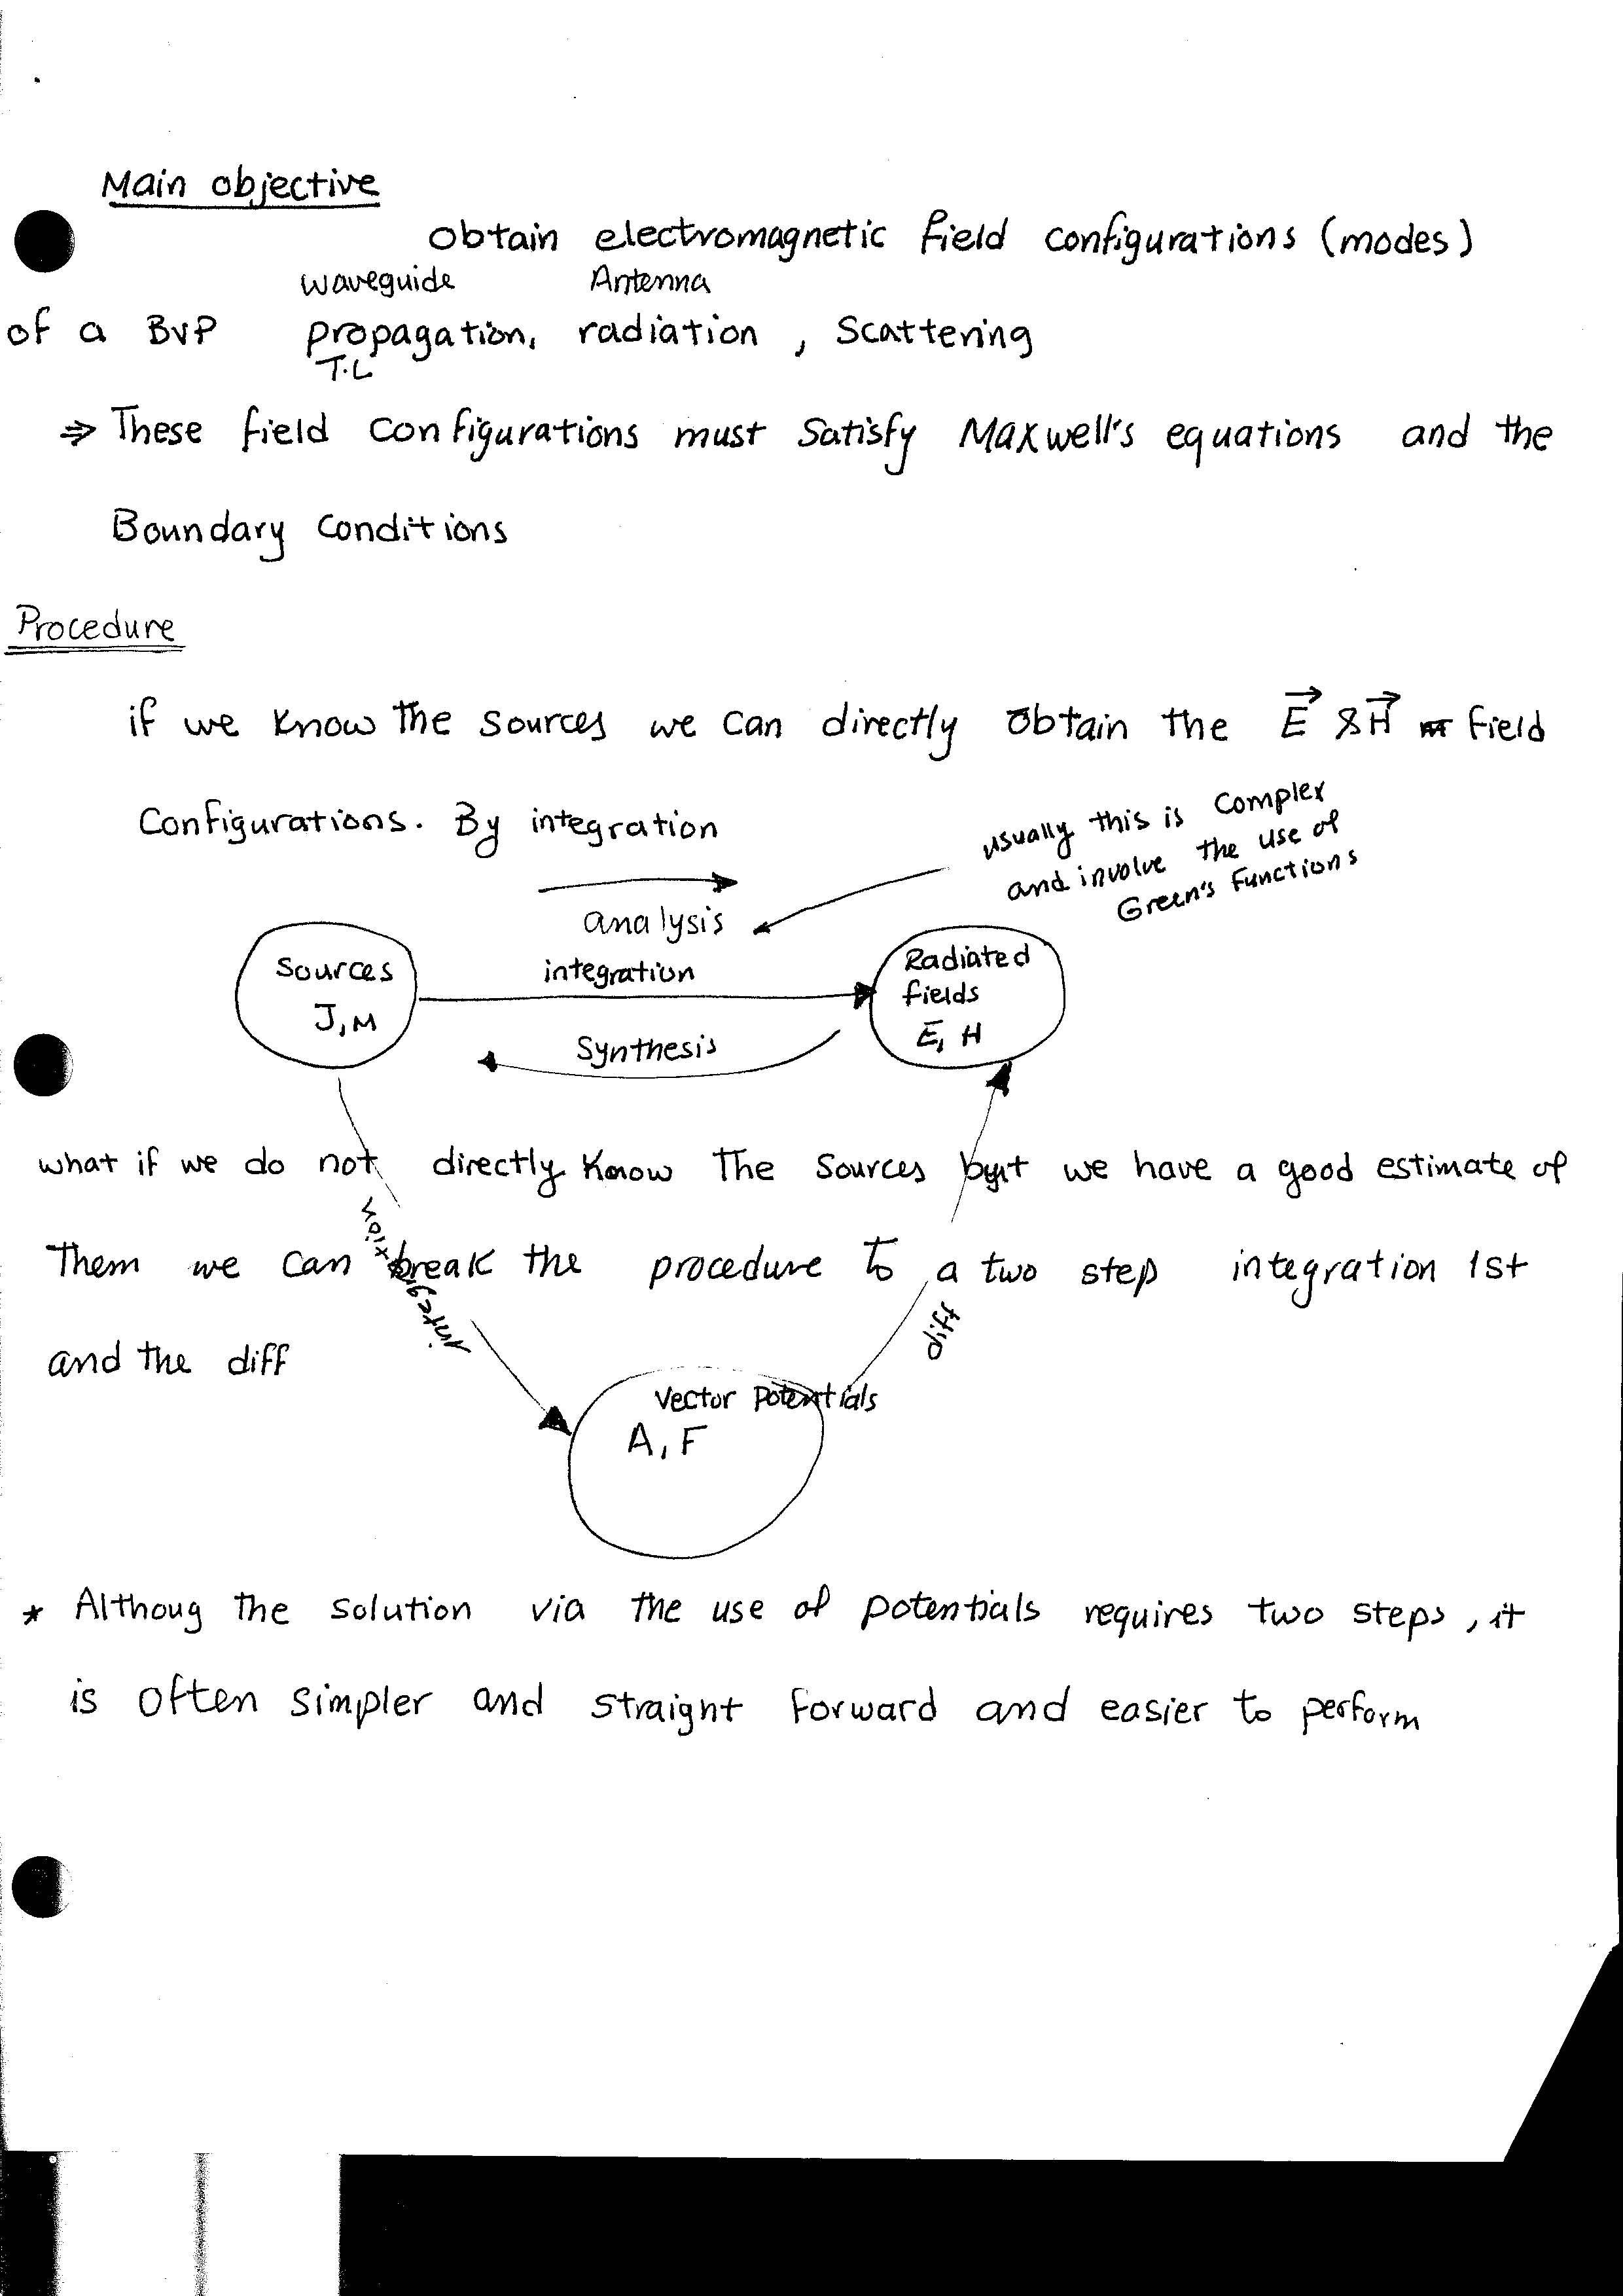 Main objective
obtain electromagnetic field configurations (modes)
waveguide Antenna
of a BVP propagation, radiation, scattering
T.L
⇒ These field configurations must satisfy Maxwell's equations and the
Boundary conditions
Procedure
if we know the sources we can directly obtain the E⃗ & H⃗ field
configurations. By integration
usually this is complex
and involve the use of
Green's Functions
analysis
Sources
J, M
integration
Radiated
fields
E, H
Synthesis
what if we do not directly know the sources but we have a good estimate of
Them we can break the procedure to a two step integration 1st
and the diff
integration
diff
Vector Potentials
A, F
* Althoug the solution via the use of potentials requires two steps, it
is often simpler and straight forward and easier to perform